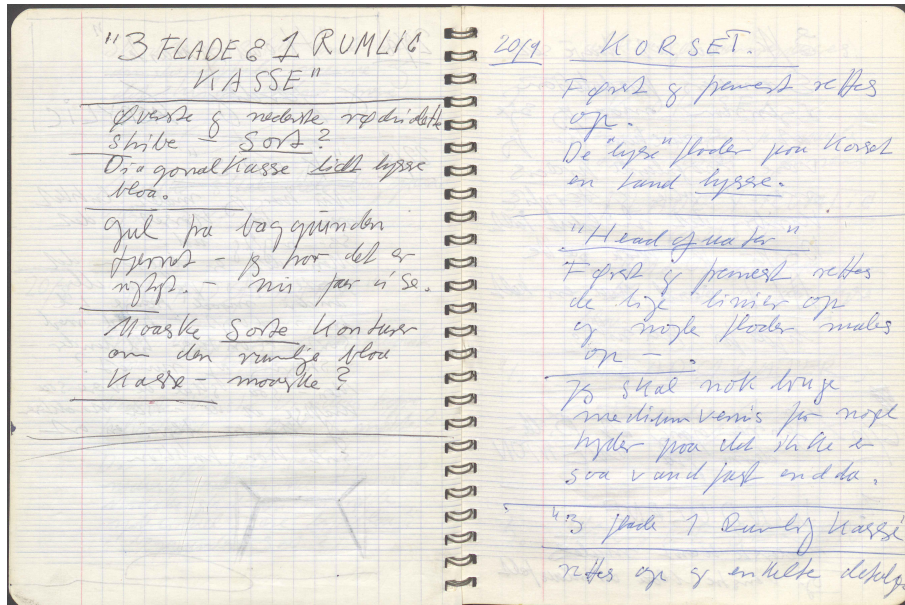 "3 FLADE & 1 RUMLIG
KASSE"
Øverste og nederste
stribe – Sort?
Diagonal Kasse lidt lysere
blaa.
Gul fra baggrunden
fjernet – jeg tror det er
rigtigt. – nu faar vi se.
Maaske Sorte Konturer
om den rumlige blaa
Kasse – maaske?
20/9 KORSET.
Først og fremmest rettes
op.
De "lyse" flader paa Korset
en tand lysere.
"Head of water"
Først og fremmest rettes
de lige linier op
og nogle flader males
op – .
jeg skal nok bruge
medium vernis for noget
tyder paa det ikke er
saa vandfast endda.
"3 flade 1 Rumlig Kasse
rettes op og enkelte